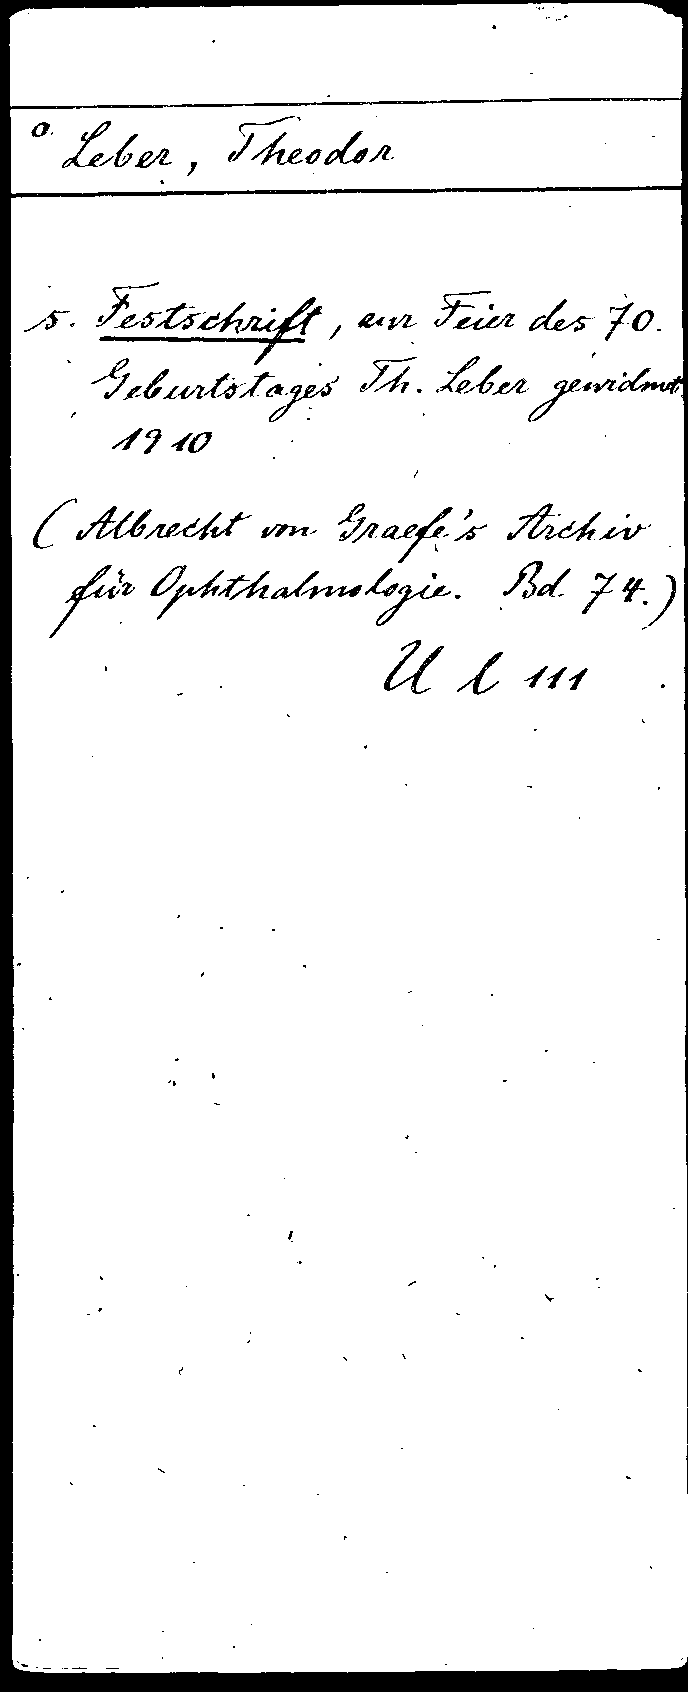 o Leber, Theodor
s. Festschrift, zur Feier des 70.
Geburtstages Th. Leber gewidmet
1910
(Albrecht von Graefe's Archiv
für Ophthalmologie. Bd. 74.)
U l 111